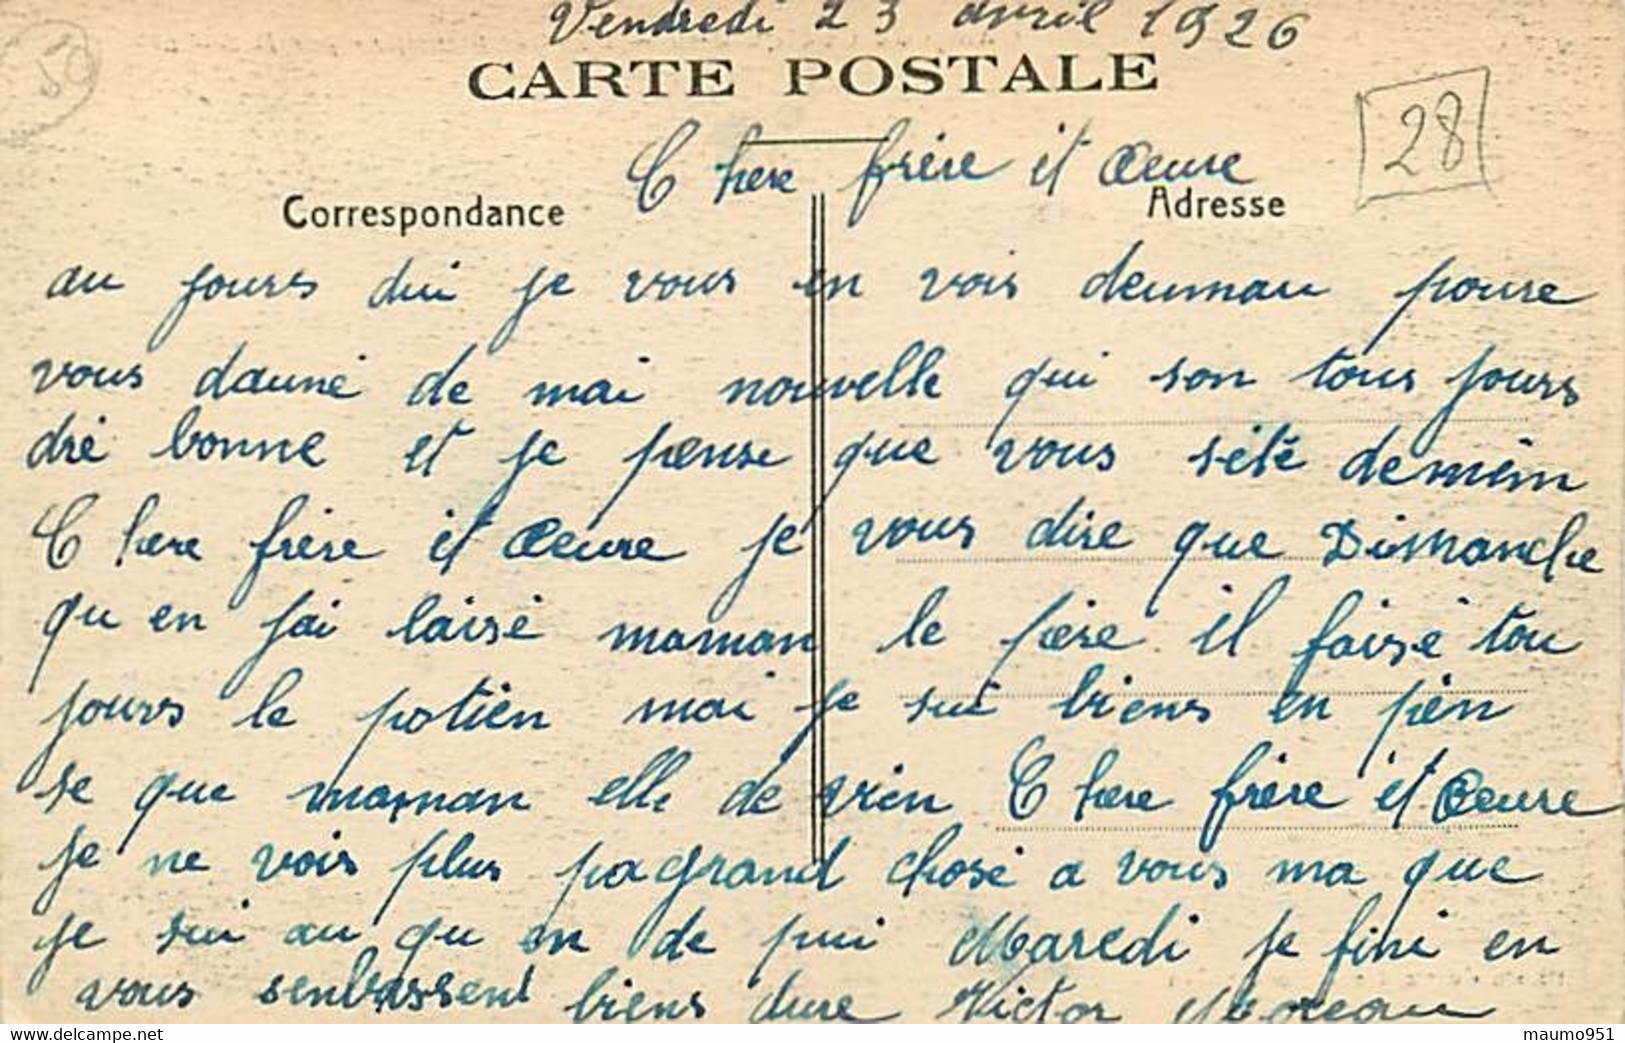 Vendredi 23 avril 1926
50
CARTE POSTALE
28
C here frére et Oeure
Correspondance
Adresse
au jours dui je vous en vois deumau poure
vous dauné de mai nouvelle qui son tous jours
dré bonne et je pense que vous sété demèm
C here frére et Oeure je vous dire que Dimanche
qu en jai laisé maman le pére il faisé tou
jours le potien mai je sui biens en pèn
se que maman elle de vien C here frére et Oeure
je ne vois plus pa grand chosé a vous ma que
je sui au qu en de pui Maredi je fini en
vous senbrassent biens dure Victor Moreau
maumo951